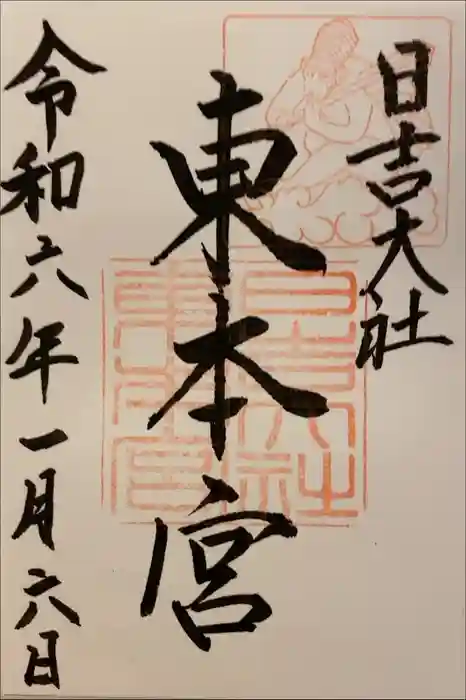 日吉大社
東本宮
日吉大社
東本宮
令和六年一月六日